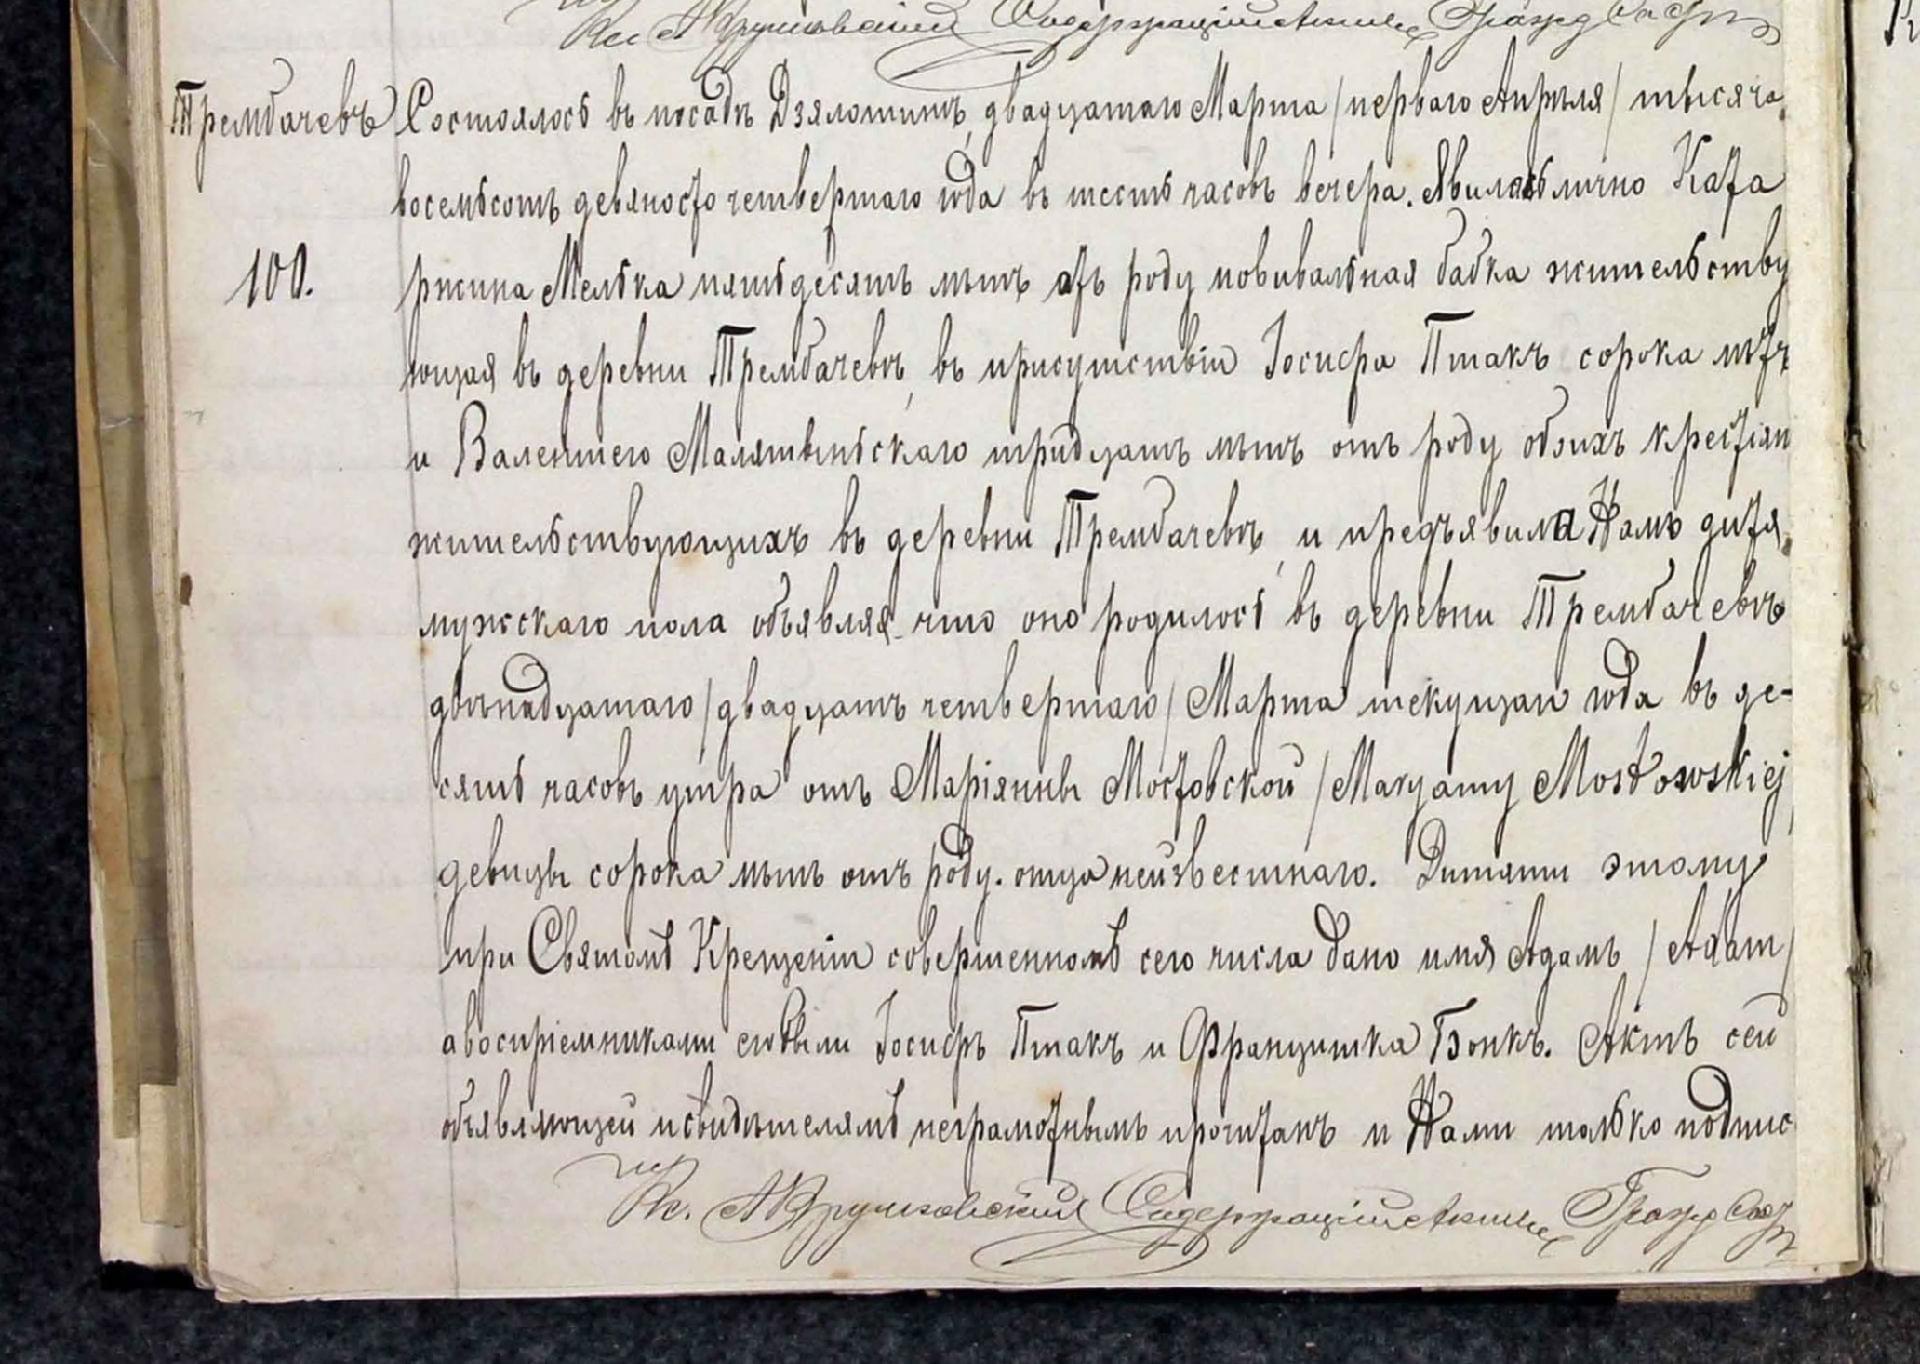 Кс А Крушковскій Содержащій Акты Гражд Сост
Трембачевъ Состоялось въ посадѣ Дзялошинѣ, двадцатаго Марта /перваго Апрѣля/ тысяча
восемьсотъ девяносто четвертаго года въ шесть часовъ вечера. Явилась лично Ката
100.
ржина Мелька пятьдесятъ лѣтъ отъ роду повивальная бабка жительству
ющая въ деревни Трембачевѣ, въ присутствіи Іосифа Птакъ сорока лѣтъ
и Валентего Малятыньскаго тридцать лѣтъ отъ роду обоихъ крестіян
жительствующихъ въ деревни Трембачевѣ, и предъявила Намъ дитя
мужскаго пола объявляя что оно родилось въ деревни Трембачевѣ
двѣнадцатаго /двадцать четвертаго/ Марта текущаго года въ де-
сять часовъ утра отъ Маріянны Мостовской /Maryanny Mostowskiej
девицы сорока лѣтъ отъ роду. отца неизвестнаго. Дитяти этому
при Святомъ Крещеніи совершенномъ сего числа дано имя Адамъ /Adam/
а воспріемниками его были Іосифъ Птакъ и Францишка Бонкъ. Актъ сей
объявляющей и свидѣтелямъ неграмотнымъ прочитанъ и Нами только подпис
Кс. А Крушковскій Содержащій Акты Гражд Сост